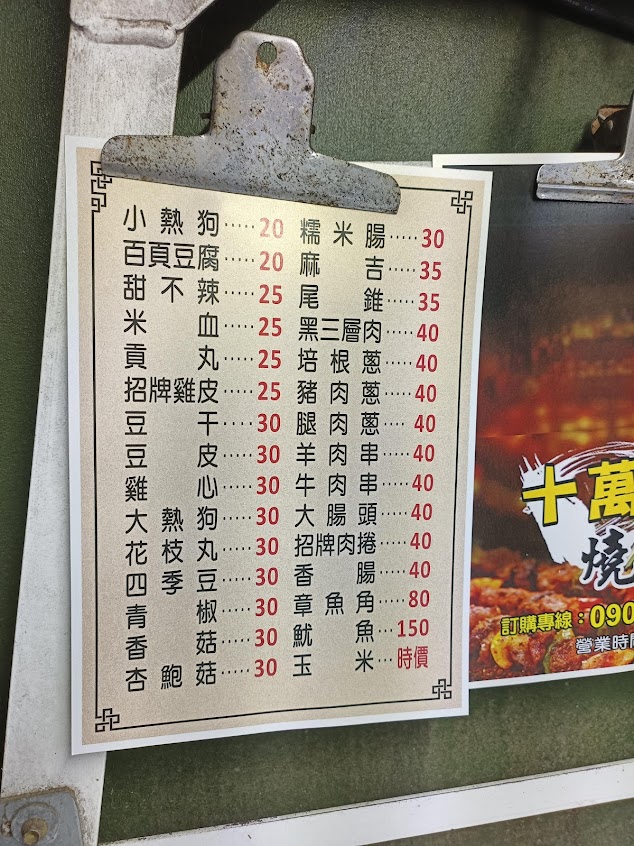 小熱狗·····20
百頁豆腐·····20
甜不辣·····25
米血·····25
貢丸·····25
招牌雞皮·····25
豆干·····30
豆皮·····30
雞心·····30
大熱狗·····30
花枝丸·····30
四季豆·····30
青椒·····30
香菇·····30
杏鮑菇·····30
糯米腸·····30
麻吉·····35
尾錐·····35
黑三層肉·····40
培根蔥·····40
豬肉蔥·····40
腿肉蔥····40
羊肉串·····40
牛肉串·····40
大腸頭·····40
招牌肉捲·····40
香腸·····40
章魚角·····80
魷魚···150
玉米···時價
十萬
燒
訂購專線：090
營業時